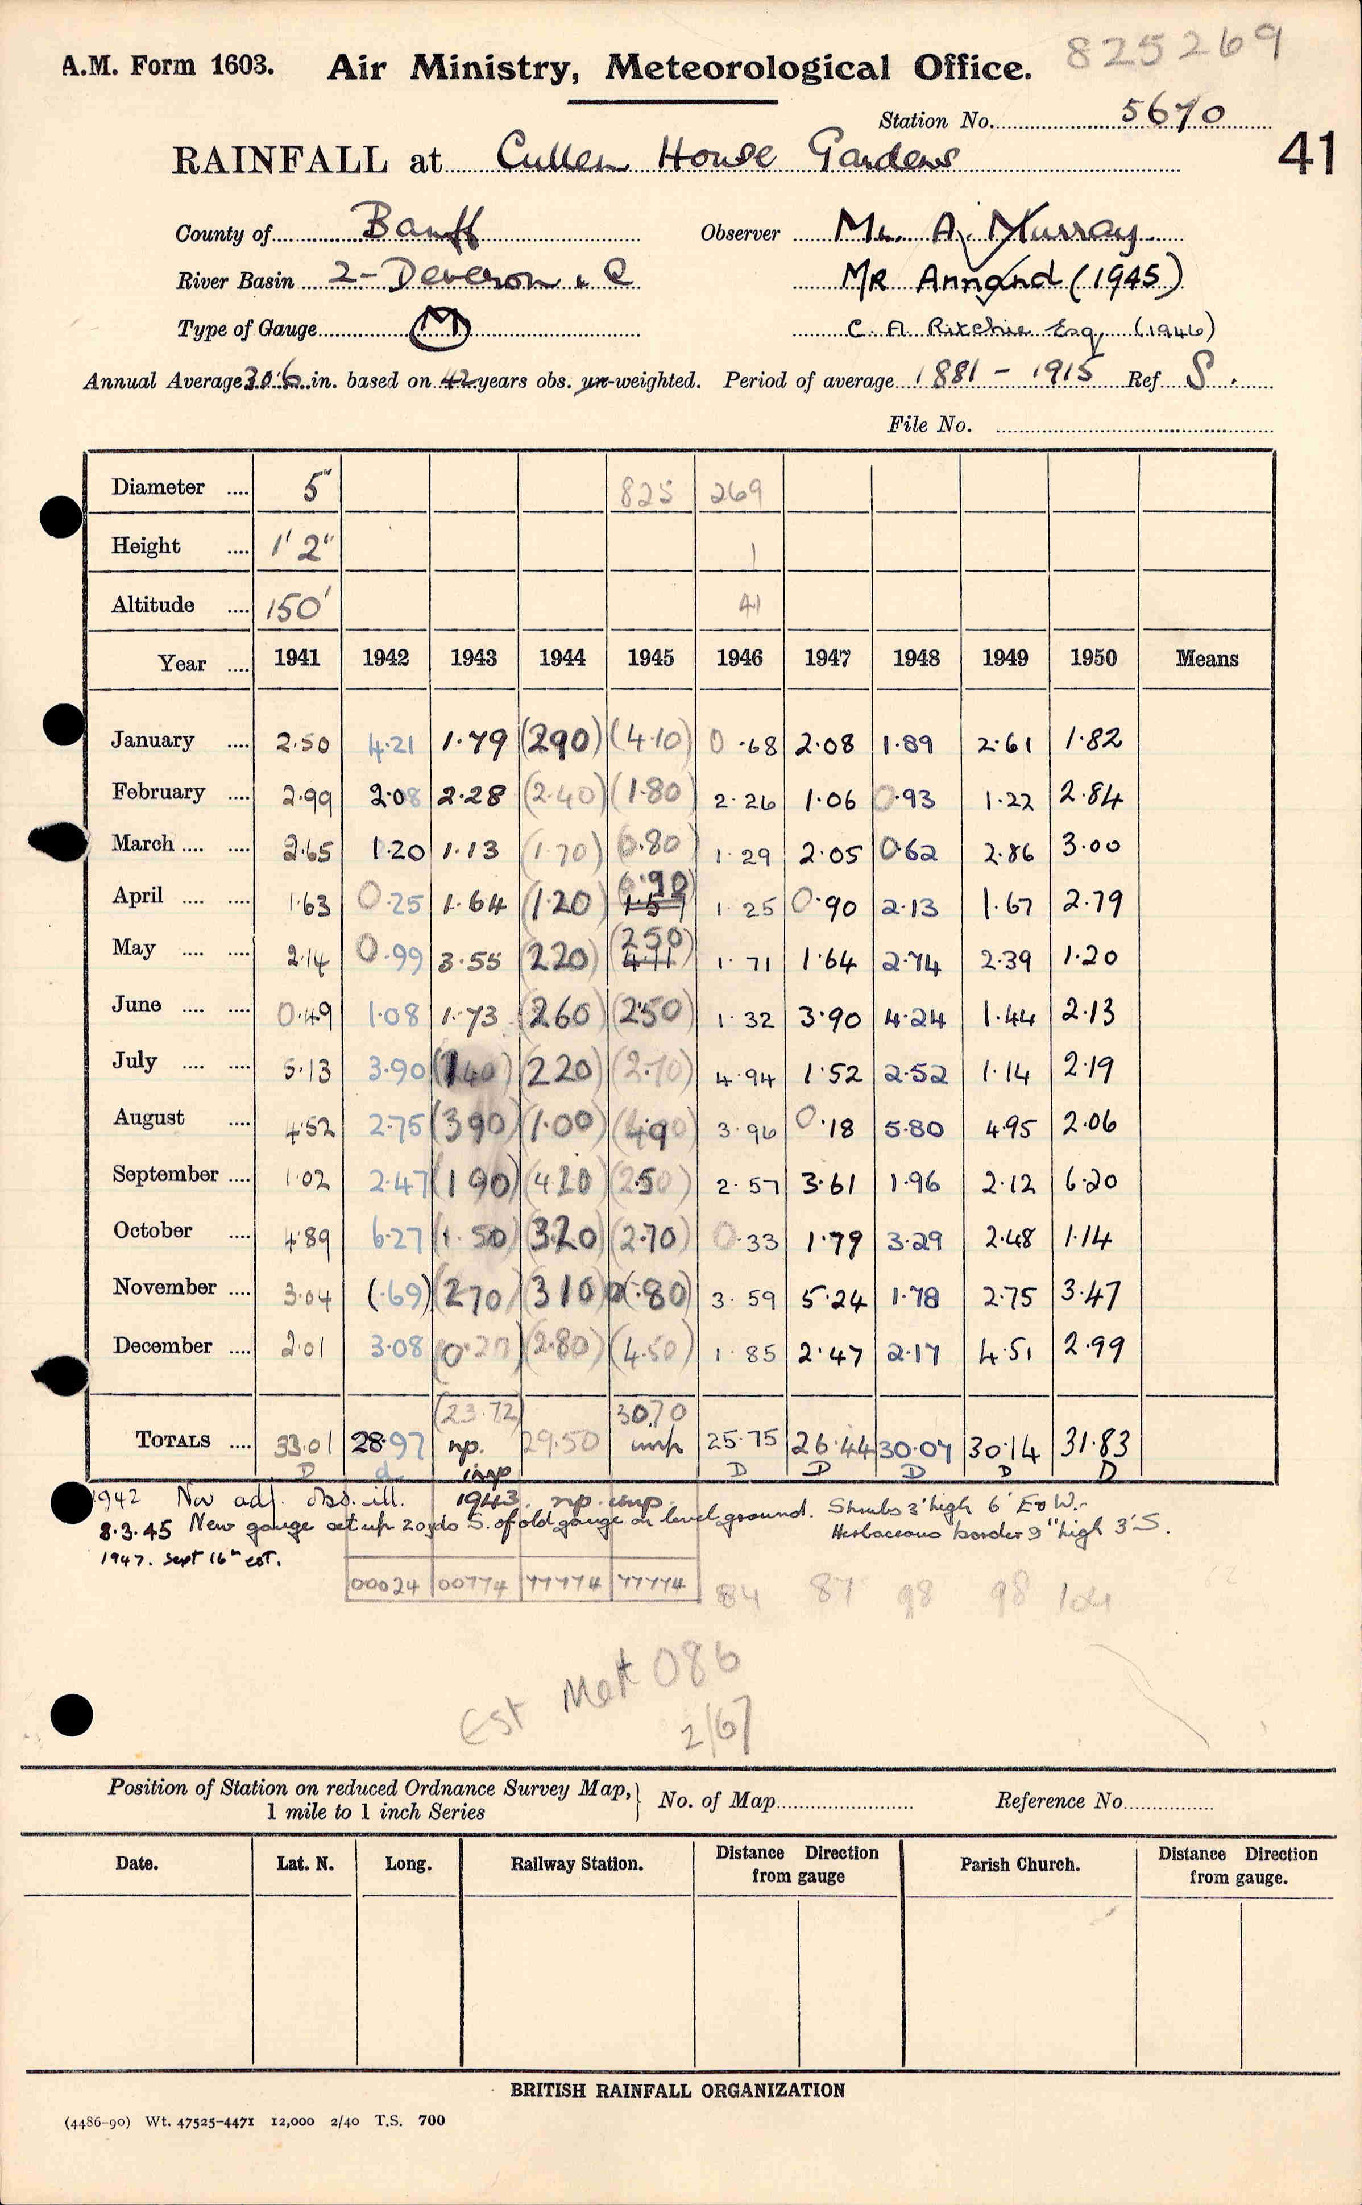 825269
A.M. Form 1603. Air Ministry, Meteorological Office.
Station No. 5670
41
RAINFALL at Cullen House Gardens
County of Banff Observer Mr. A. Murray
River Basin 2 - Deveron & C MR Annand (1945)
Type of Gauge M C. A. Ritchie Esq. (1946)
Annual Average 30.6 in. based on 42 years obs. un-weighted. Period of average 1881 - 1915 Ref S.
File No.
Diameter .... 5" 825 269
Height .... 1' 2" 1
Altitude .... 150' 41
Year .... 1941 1942 1943 1944 1945 1946 1947 1948 1949 1950 Means
January .... 2.50 4.21 1.79 (290) (4.10) 0.68 2.08 1.89 2.61 1.82
February .... 2.99 2.08 2.28 (2.40) (1.80) 2.26 1.06 0.93 1.22 2.84
March .... .... 2.65 1.20 1.13 (1.70) (0.80) 1.29 2.05 0.62 2.86 3.00
April .... .... 1.63 0.25 1.64 (1.20) (0.90) 1.57 1.25 0.90 2.13 1.67 2.79
May .... .... 2.14 0.99 3.55 (220) (250) 4.11 1.71 1.64 2.74 2.39 1.20
June .... .... 0.49 1.08 1.73 (260) (250) 1.32 3.90 4.24 1.44 2.13
July .... .... 5.13 3.90 (1.40) (220) (2.70) 4.94 1.52 2.52 1.14 2.19
August .... 4.52 2.75 (390) (1.00) (4.90) 3.96 0.18 5.80 4.95 2.06
September .... 1.02 2.47 (190) (420) (2.50) 2.57 3.61 1.96 2.12 6.20
October .... 4.89 6.27 (1.50) (320) (2.70) 0.33 1.79 3.29 2.48 1.14
November .... 3.04 (.69) (270) (310) 0(.80) 3.59 5.24 1.78 2.75 3.47
December .... 2.01 3.08 (2.80) (4.50) 1.85 2.47 2.17 4.51 2.99
(23.72) 30.70
TOTALS .... 33.01 28.97 np. 29.50 imp 25.75 26.44 30.07 30.14 31.83
D d imp D D D D D
1942 Nov adj. obs. ill. 1943. np. imp.
8.3.45 New gauge set up 20 yds S. of old gauge on level ground. Shrubs 3' high 6' E & W.
Herbaceous border 9" high 3' S.
1947. Sept 16th est.
00024 00774 77774 77774 84 87 98 98 104
Est Met 086
2/67
Position of Station on reduced Ordnance Survey Map, } No. of Map Reference No.
1 mile to 1 inch Series
Date. Lat. N. Long. Railway Station. Distance Direction from gauge Parish Church. Distance Direction from gauge.
BRITISH RAINFALL ORGANIZATION
(4486-90) Wt. 47525-4471 12,000 2/40 T.S. 700